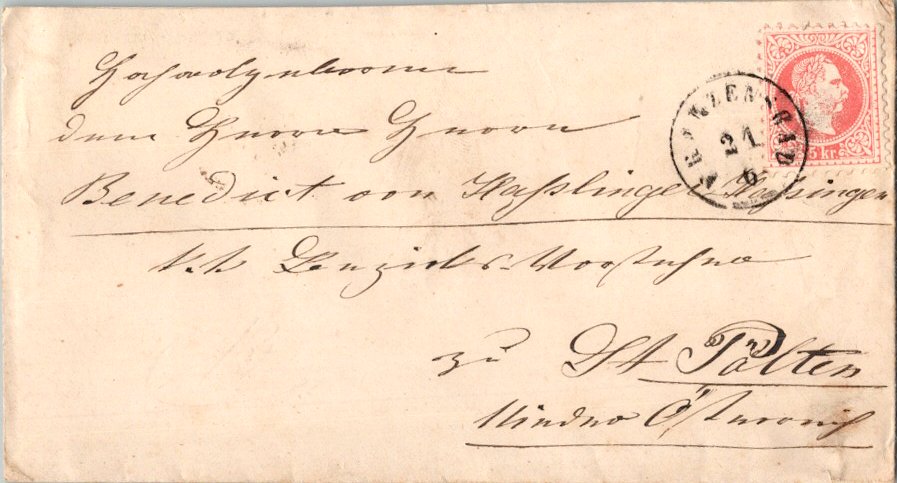 Hochwolgeborne
dem Herrn Herrn
Benedict von Haßlinger Hassingen
k.k Bezirks-Vorsteher
zu St Pölten
Nieder Österreich
FRANZENSBAD
21
6
5 kr